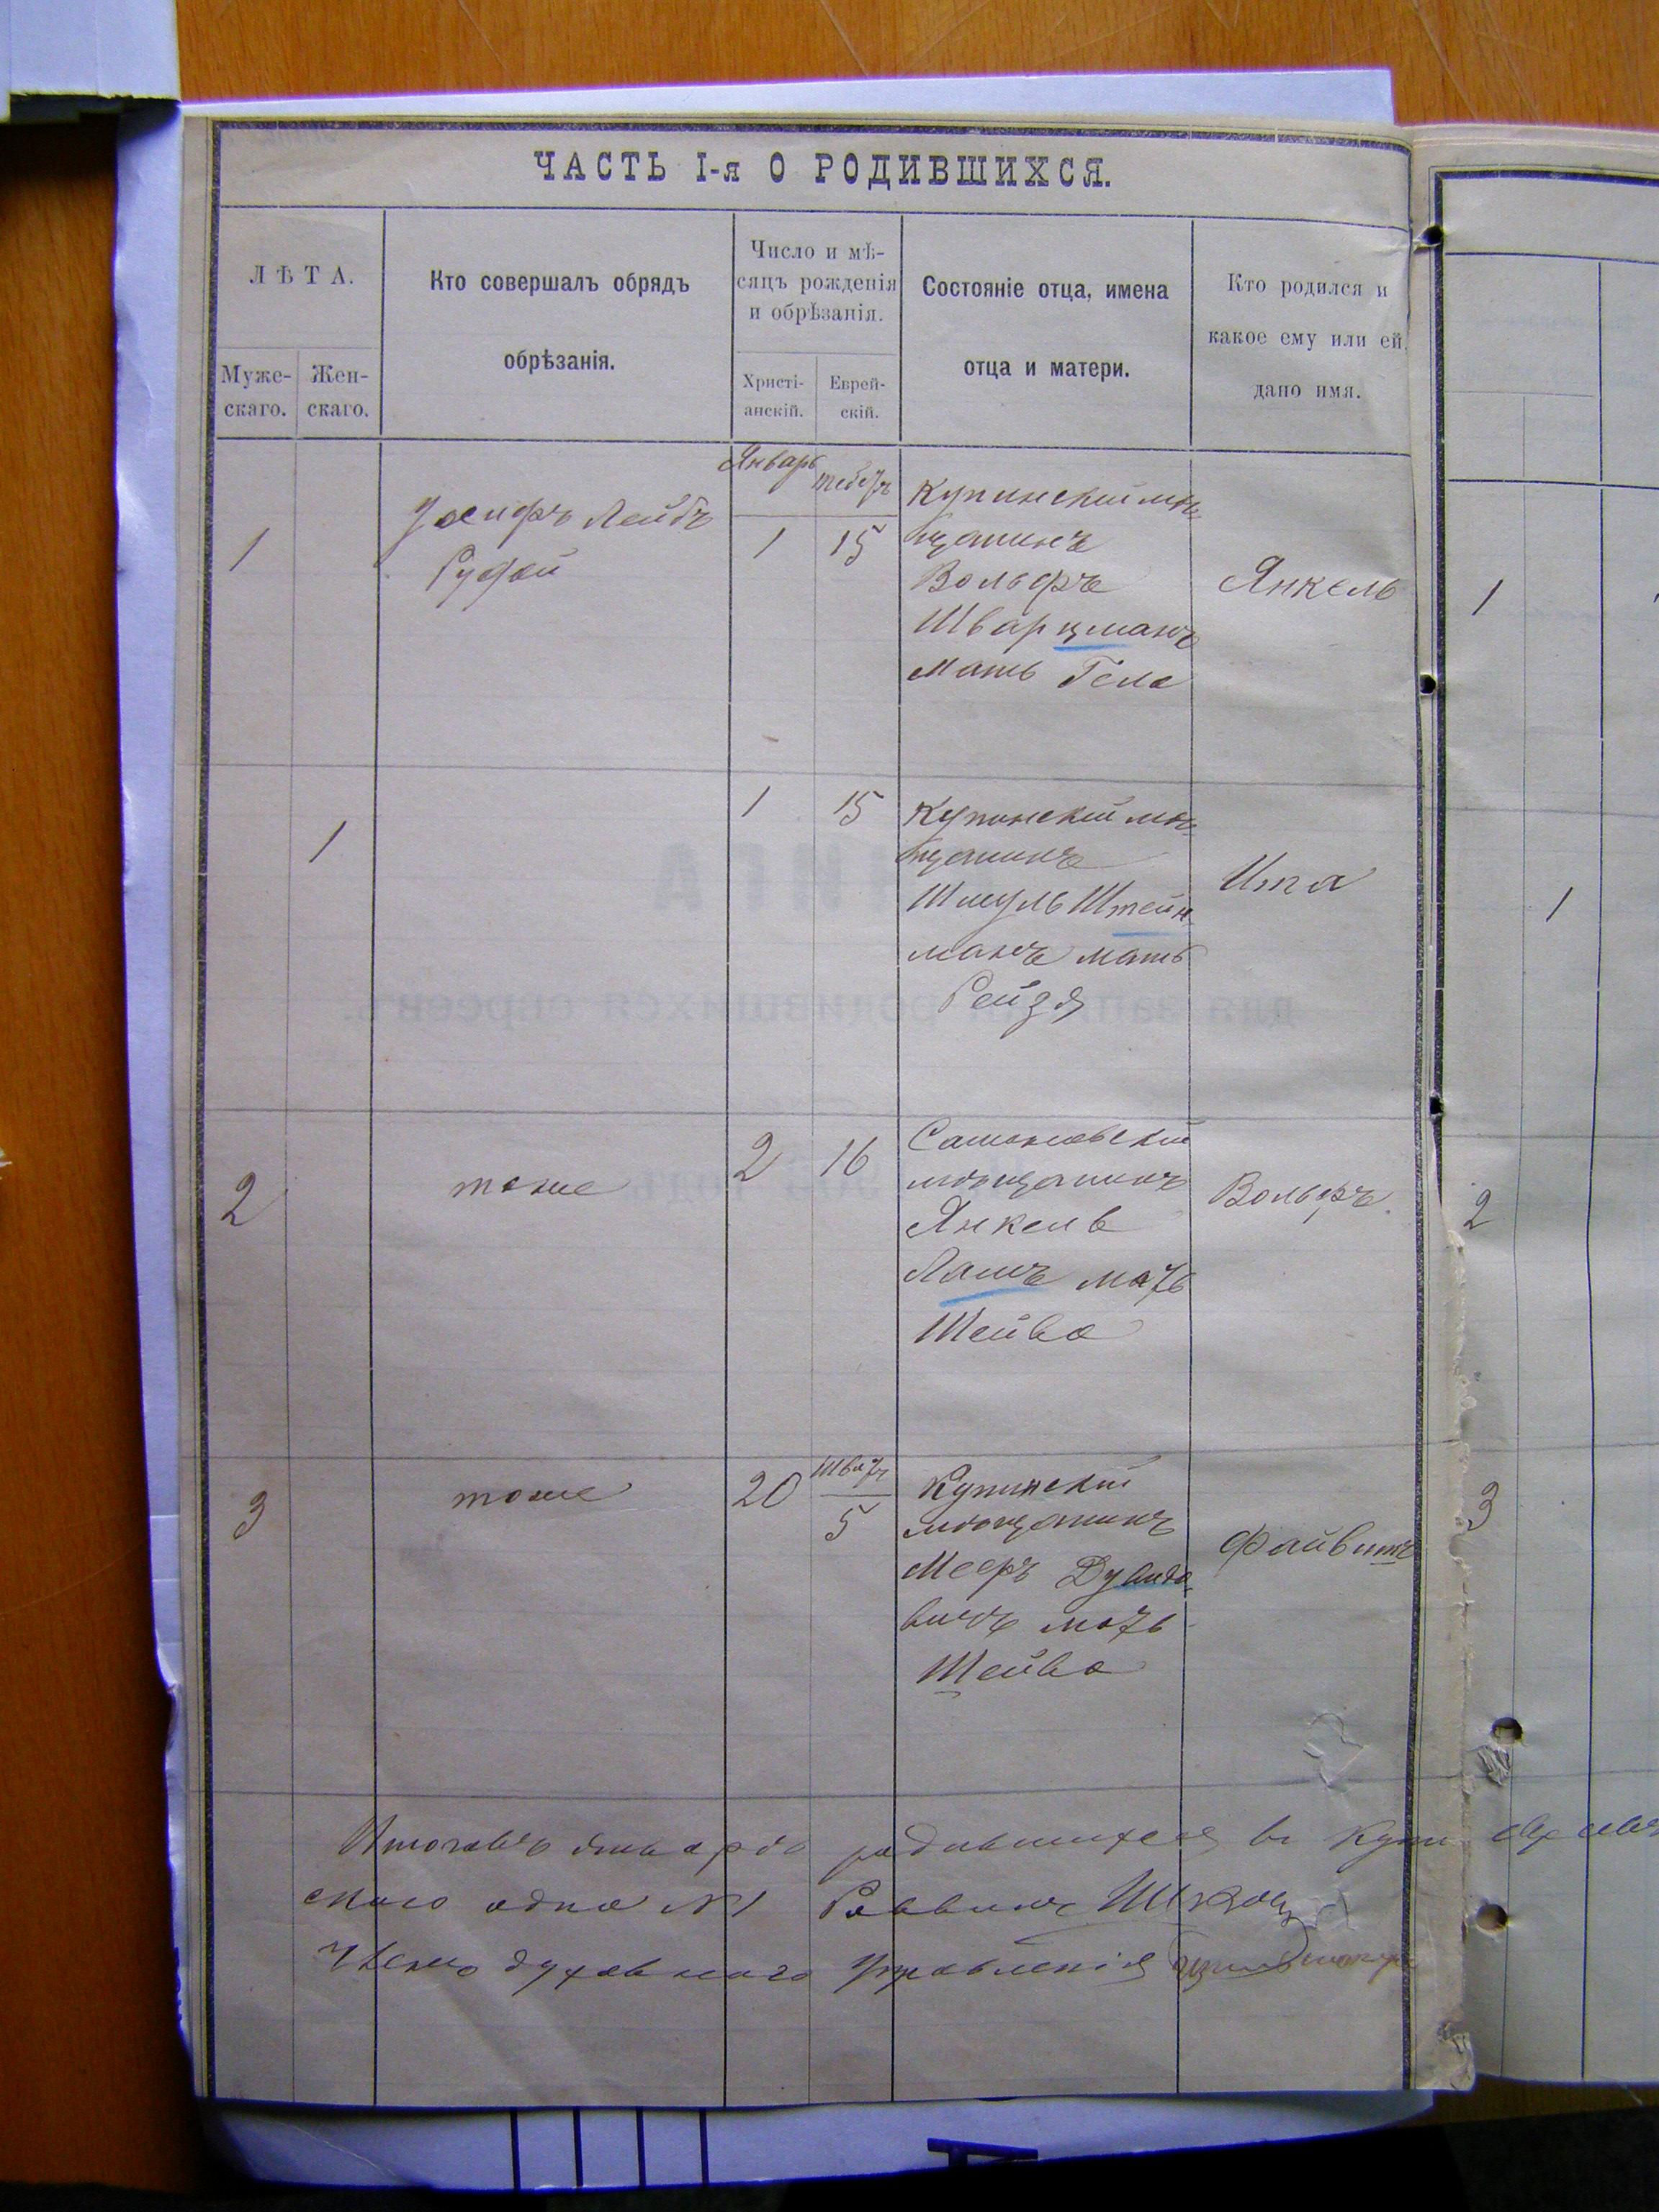 ЧАСТЬ I-я О РОДИВШИХСЯ.
ЛѢТА.
Муже-
скаго.
Жен-
скаго.
Кто совершалъ обрядъ
обрѣзанія.
Число и мѣ-
сяцъ рожденія
и обрѣзанія.
Христі-
анскій.
Еврей-
скій.
Состояніе отца, имена
отца и матери.
Кто родился и
какое ему или ей
дано имя.
Январь
1
Іосифъ Лейбъ
Руфой
1
15
Купинскій мѣ-
щанинъ
Вольфъ
Шварцманъ
мать Гела
Янкель
1
1
1
15
Купинскій мѣ-
щанинъ
Шмуль Штейн-
манъ мать
Рейзя
Ита
1
2
тоже
2
16
мѣщанинъ
Янкель
мать
Шейва
Вольфъ
2
3
тоже
20
Шватъ
5
Купинскій
мѣщанинъ
Мееръ
вичъ мать
Шейва
Файвишъ
3
января родившихся въ
одна №1 Раввинъ
духовнаго Управленія